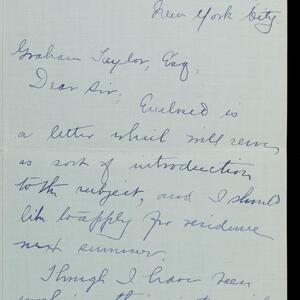 New York City
Graham Taylor, Esq,
Dear Sir; Enclosed is
a letter which will serve
as sort of introduction
to the subject, and I should
like to apply for residence
next summer.
Though I have been